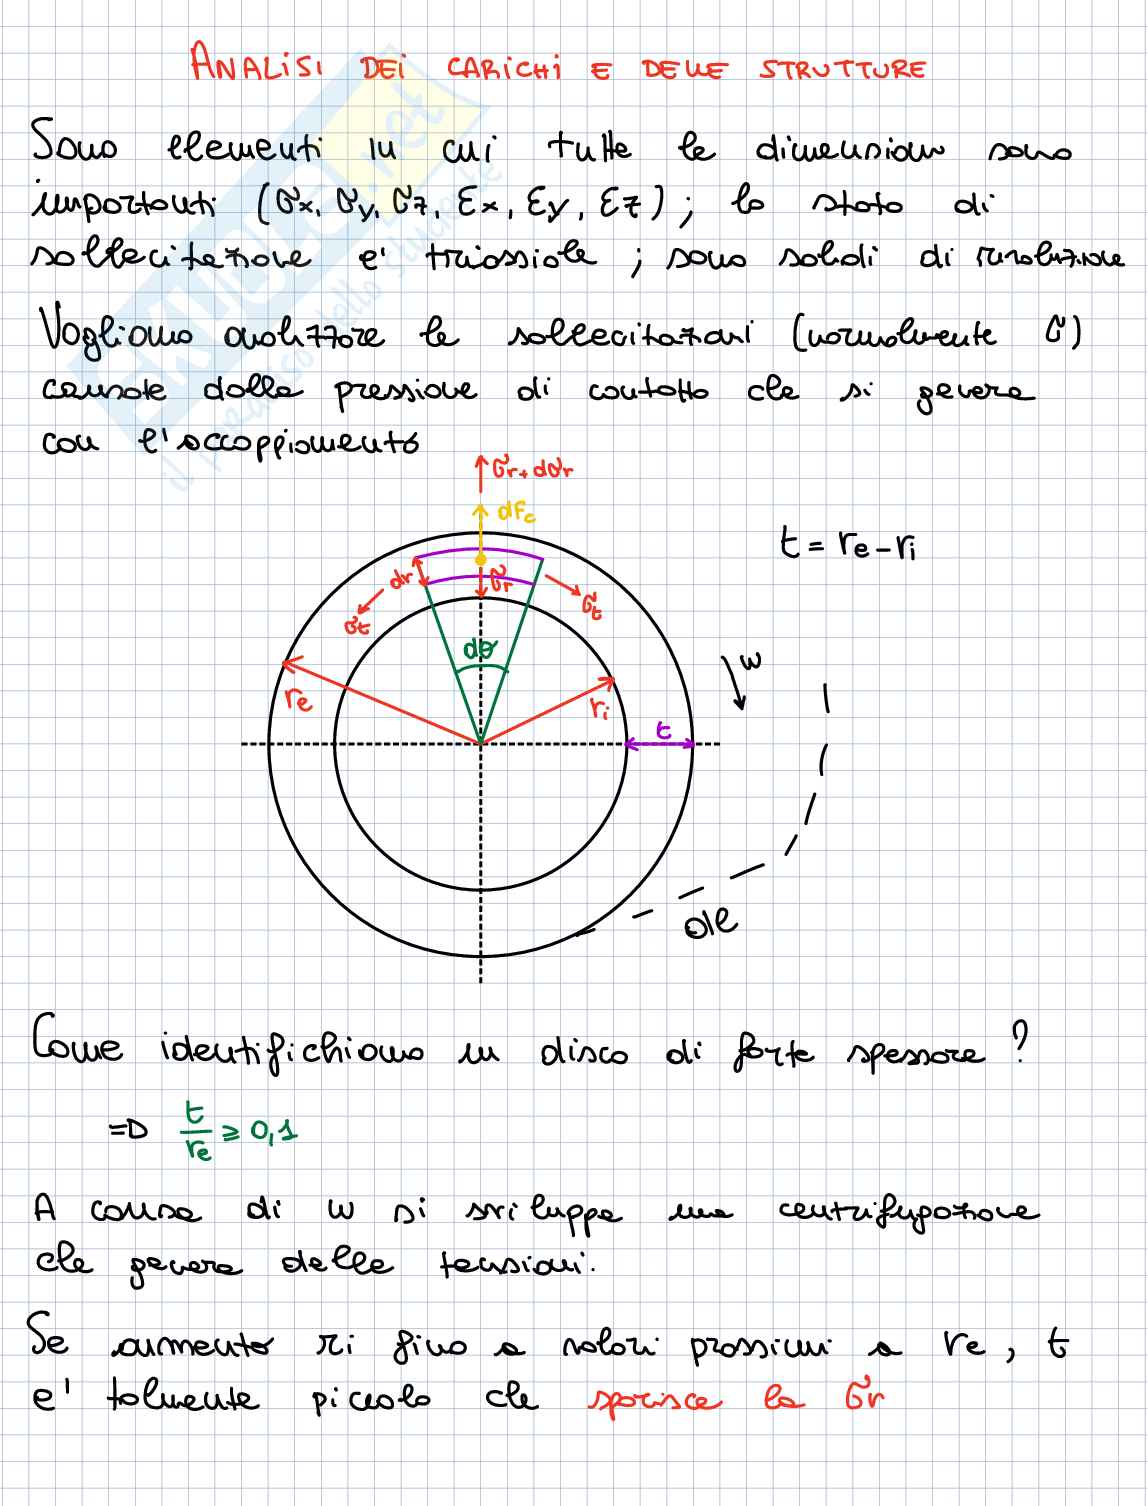 ANALISI DEI CARICHI E DELLE STRUTTURE
Sono elementi in cui tutte le dimensioni sono
importanti (σx, σy, σz, εx, εy, εz); lo stato di
sollecitazione e' triassiale; sono solidi di rivoluzione
Vogliamo analizzare le sollecitazioni (normalmente σ)
causate dalla pressione di contatto che si genera
con l'accoppiamento
σr+dσr
dFc
t = re - ri
dr
σr
σt
σt
dθ
w
re
ri
t
Come identifichiamo un disco di forte spessore?
=D t/re ≥ 0,1
A causa di w si sviluppa una centrifugazione
che genera delle tensioni.
Se aumento ri fino a valori prossimi a re, t
e' talmente piccolo che sparisce la σr
SKUOLA.net
il paradiso dello studente